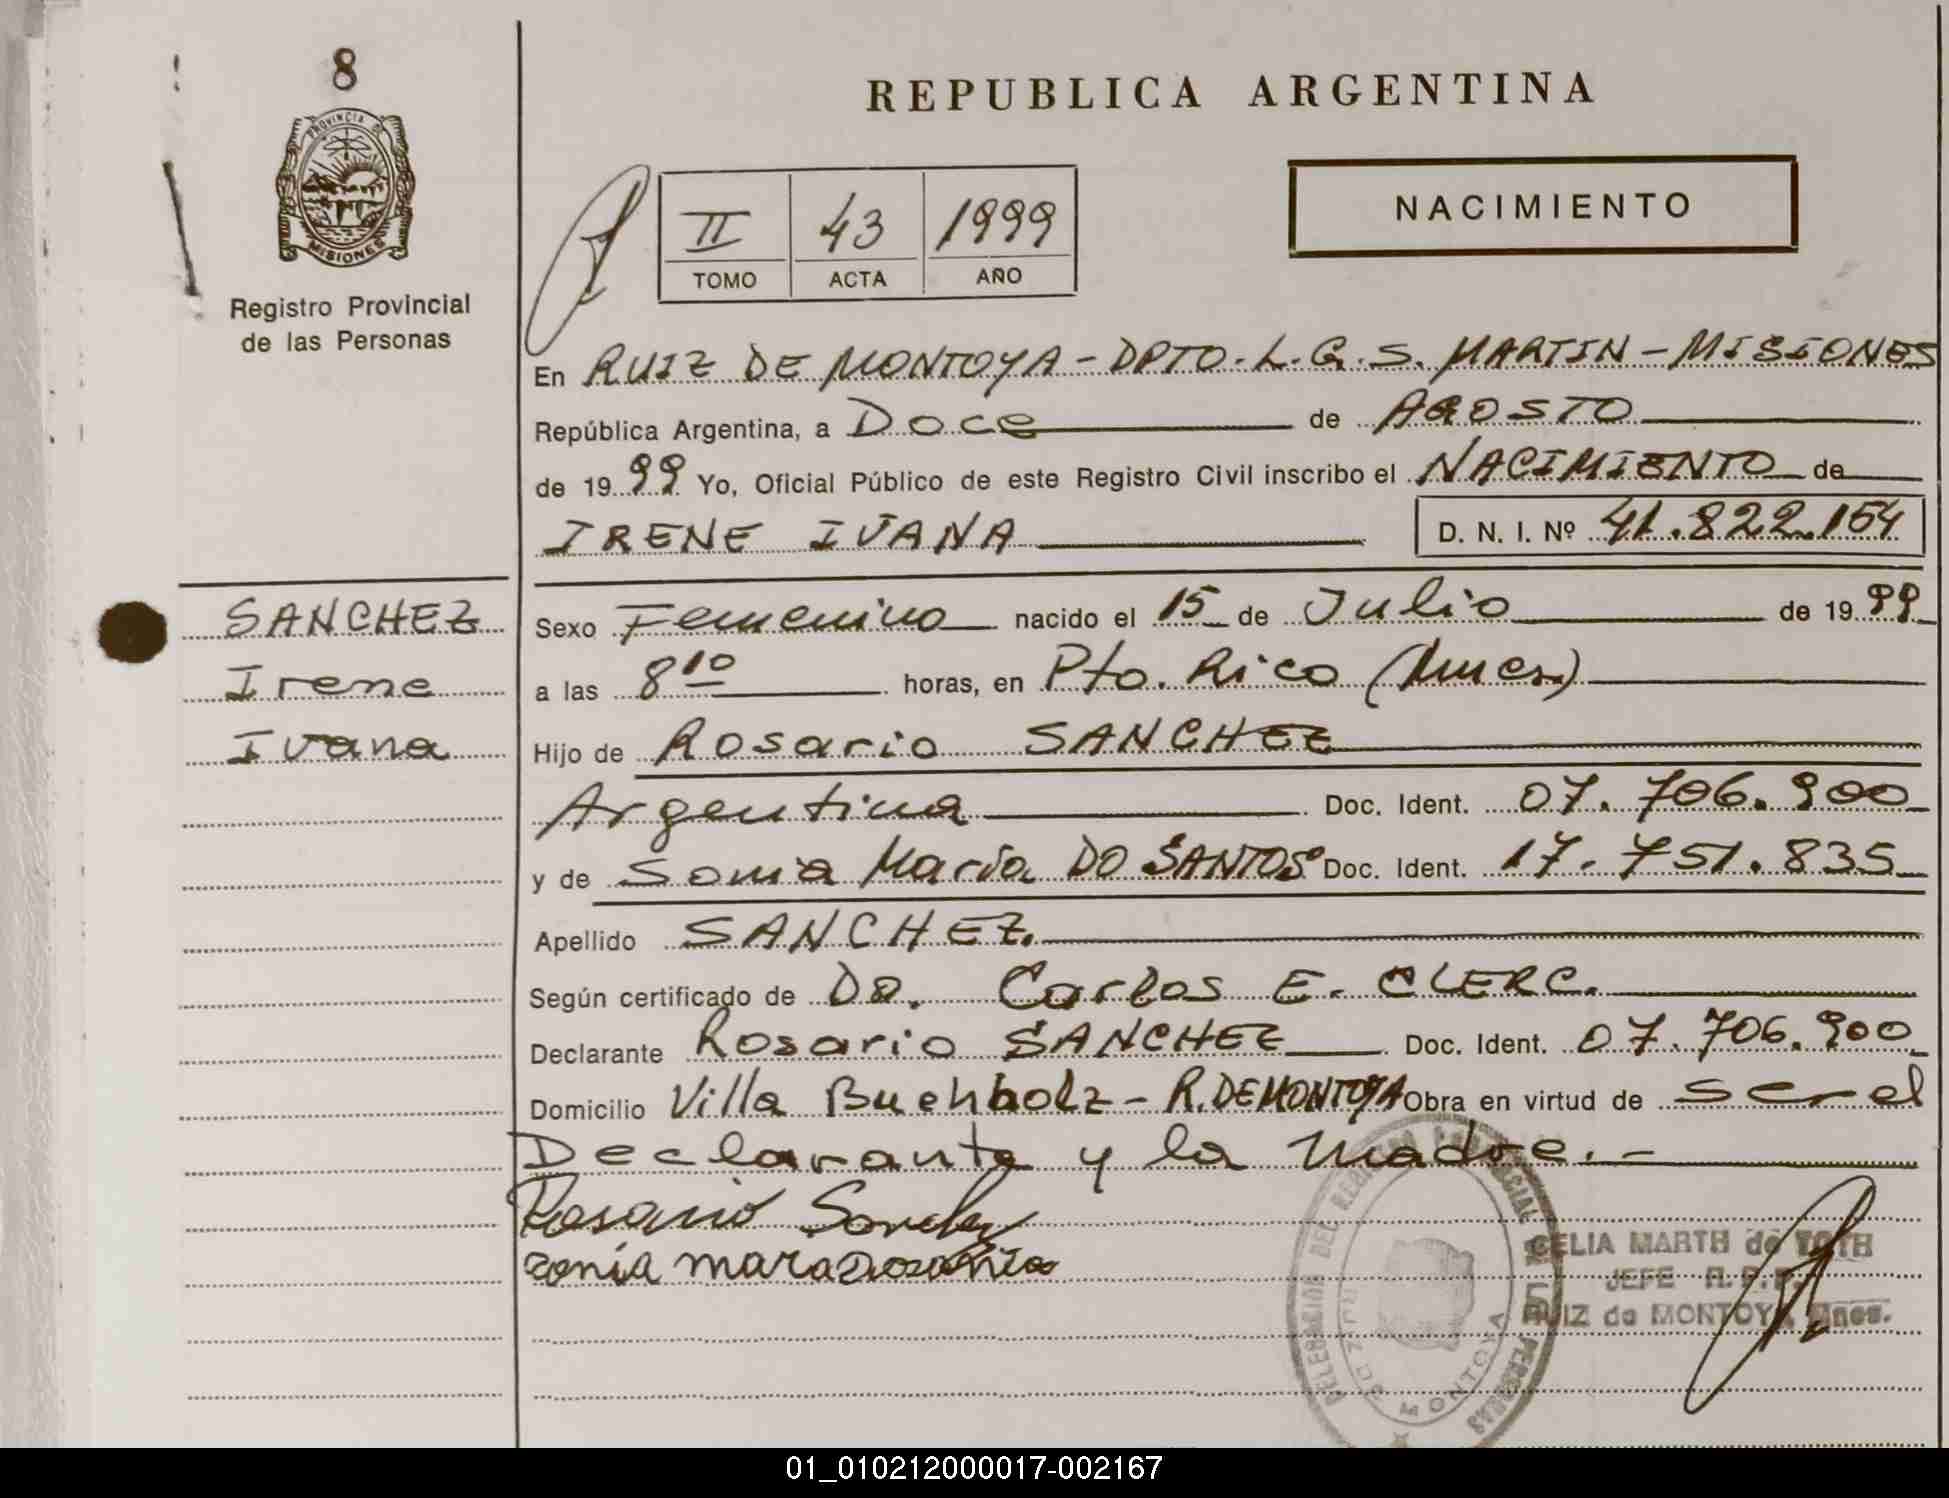 8
PROVINCIA DE
MISIONES
Registro Provincial
de las Personas
REPUBLICA ARGENTINA
II 43 1999
TOMO ACTA AÑO
NACIMIENTO
En RUIZ DE MONTOYA - DPTO. L. G. S. MARTIN - MISIONES
República Argentina, a Doce de AGOSTO
de 1999 Yo, Oficial Público de este Registro Civil inscribo el NACIMIENTO de
IRENE IVANA D. N. I. Nº 41.822.154
SANCHEZ
Irene
Ivana
Sexo Femenino nacido el 15 de Julio de 1999
a las 8 10 horas, en Pto. Rico (Mnes.)
Hijo de Rosario SANCHEZ
Argentina Doc. Ident. 07.706.900
y de Sonia María DO SANTOS Doc. Ident. 17.751.835
Apellido SANCHEZ.
Según certificado de DR. Carlos E. CLERC.
Declarante Rosario SANCHEZ Doc. Ident. 07.706.900
Domicilio Villa Buchholz - R. DE MONTOYA Obra en virtud de ser el
Declarante y la Madre.-
Rosario
Sonia
DELEGACION DEL REGISTRO PROVINCIAL DE LAS PERSONAS
RUIZ DE MONTOYA
CELIA MARTH de TOTH
JEFE R. P. P.
RUIZ de MONTOYA, Mnes.
01_010212000017-002167